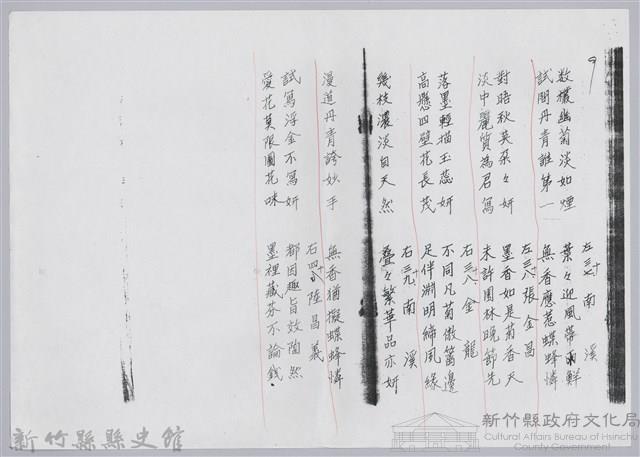 9
数欉幽菊淡如煙
葉々迎風帶雨鮮
試問丹青誰第一
無香應惹蝶蜂憐
左三七 南溪
對晤秋英朶々妍
墨香如是菊香天
淡中麗質為君寫
未許園林晚節先
左三八 張金昌
落墨輕描玉蕊妍
不同凡菊傲籬邊
高懸四壁花長茂
足伴淵明締夙緣
右三八 金龍
幾枝濃淡自天然
疊々繁華品亦妍
右三九 南溪
漫道丹青誇妙手
無香猶擬蝶蜂憐
右四十 陸昌義
試寫浮金不寫妍
都因趣旨效陶然
愛花莫限園花咏
墨裡藏芬不論錢
新竹縣縣史館
新竹縣政府文化局
Cultural Affairs Bureau of Hsinchu
County Government